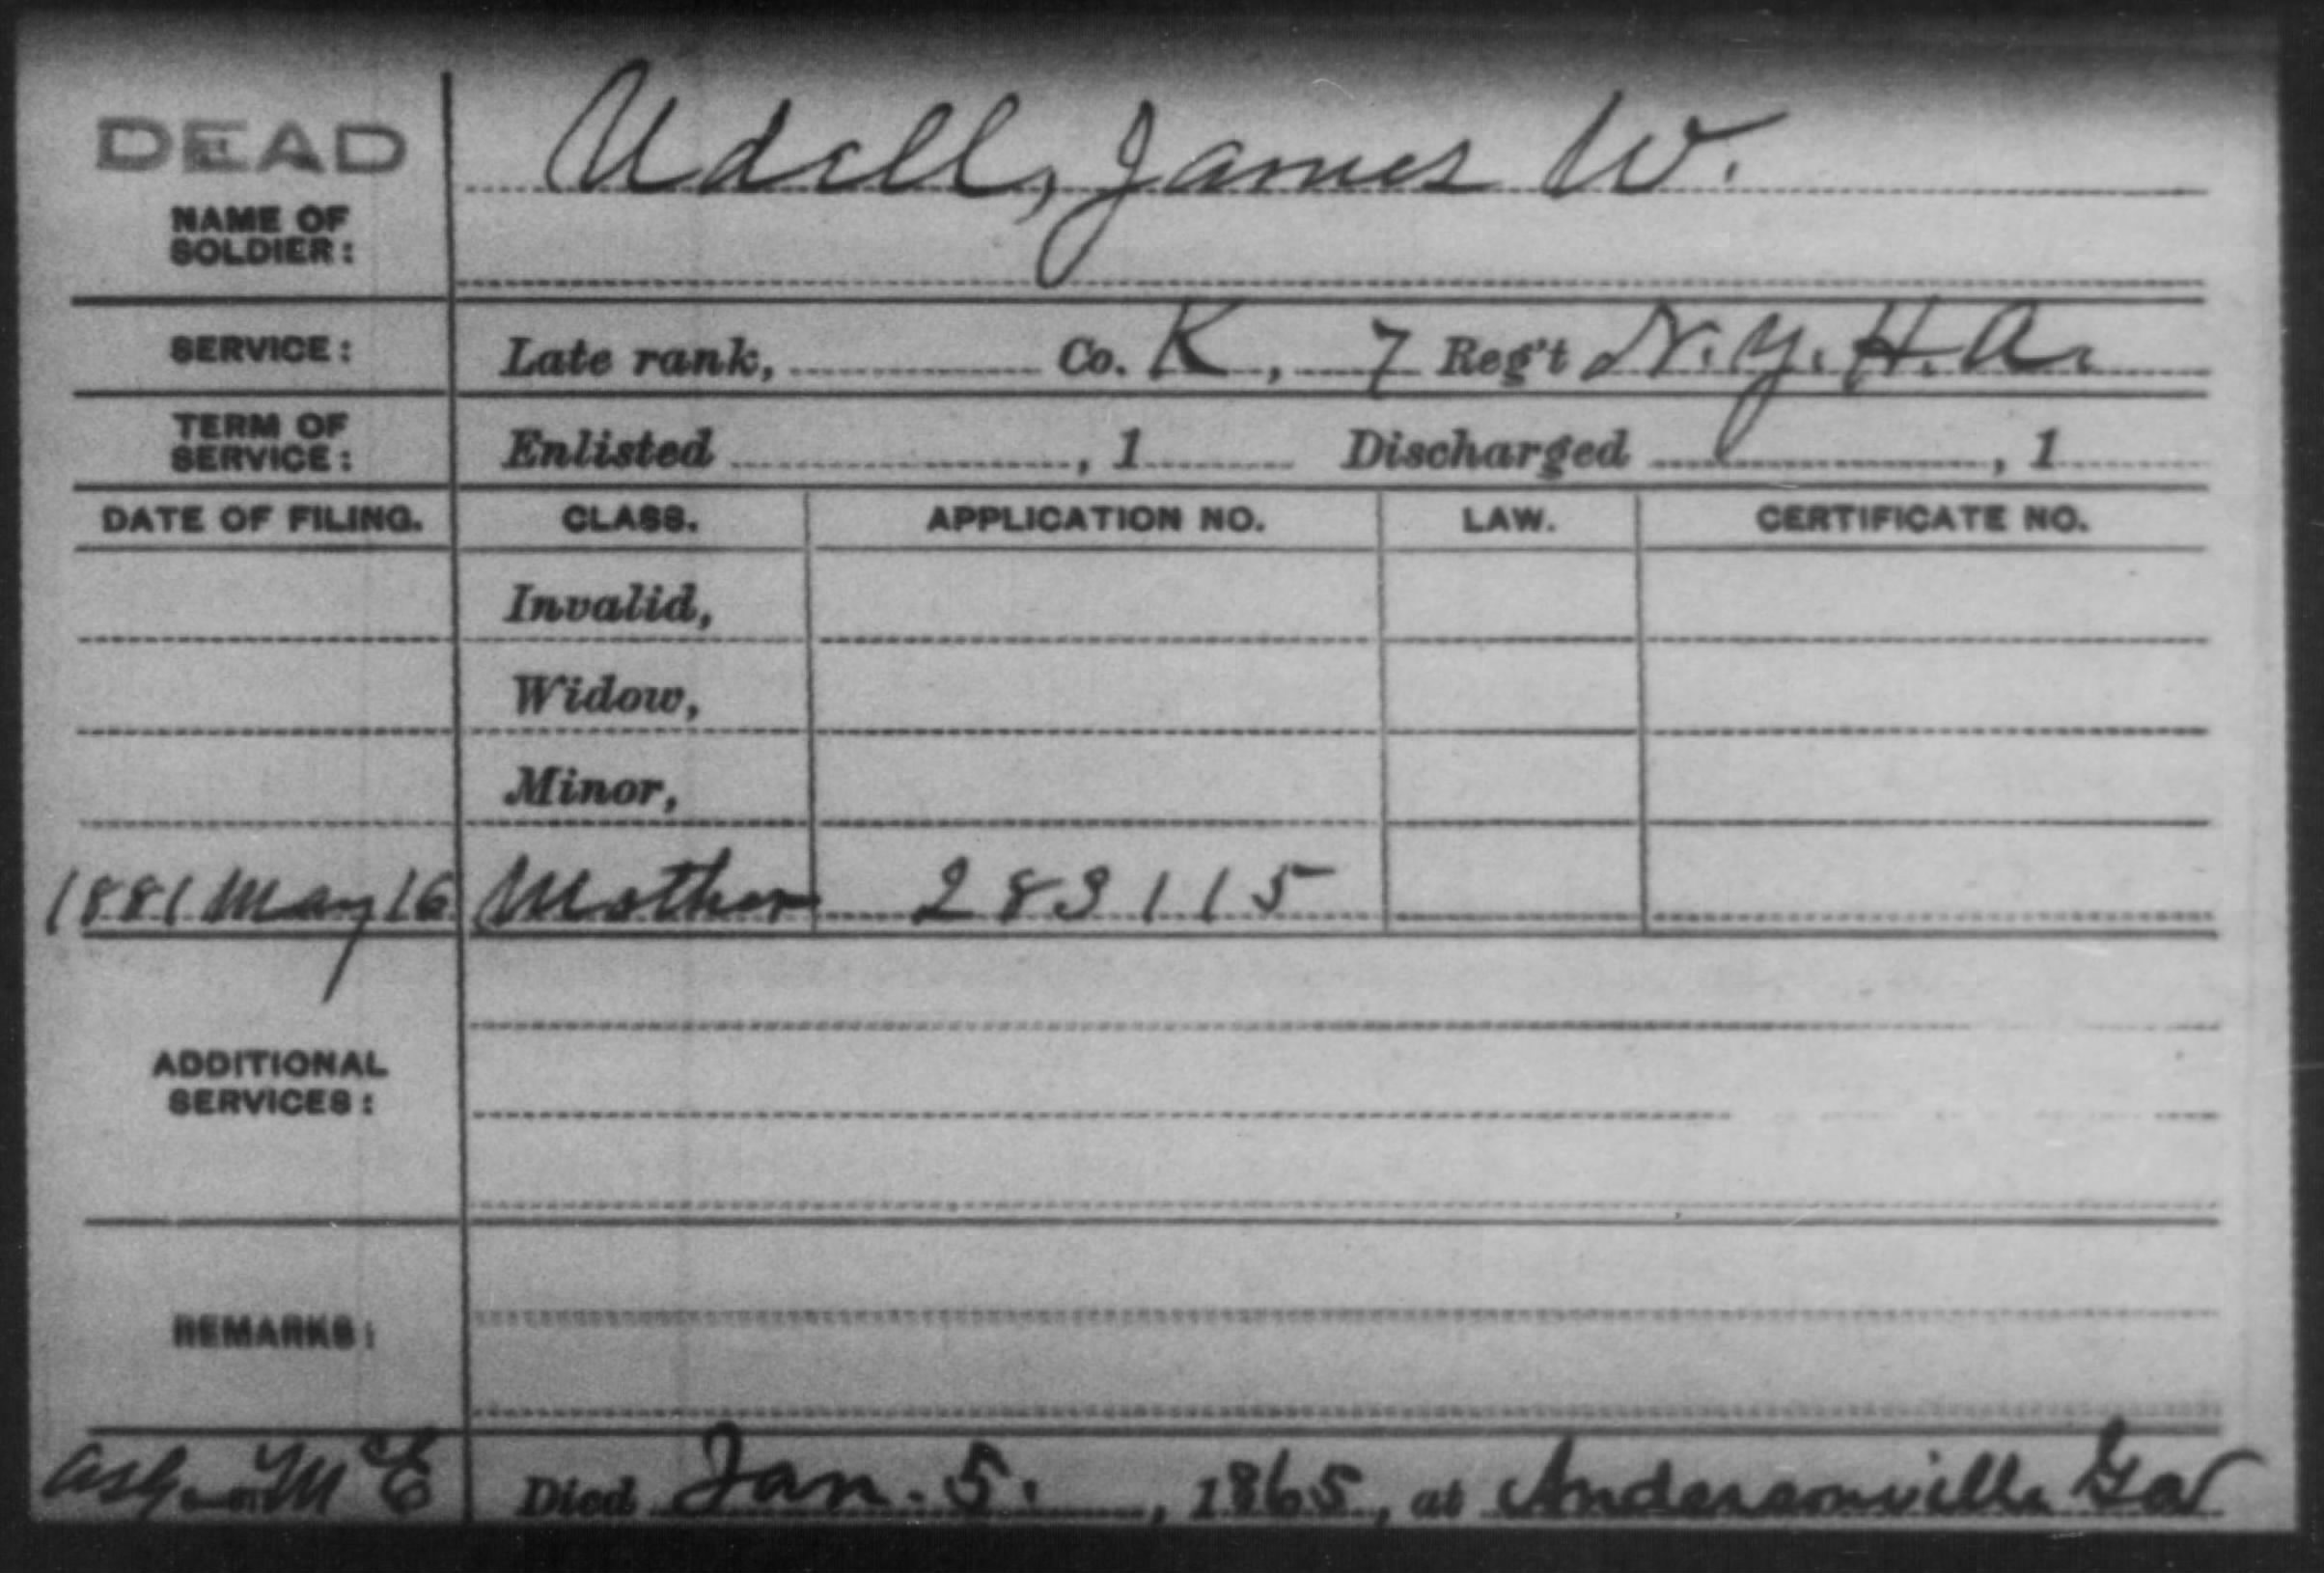 DEAD
Udell, James W.
NAME OF
SOLDIER:
SERVICE: Late rank, Co. K, 7 Reg't N.Y.H.A.
TERM OF
SERVICE: Enlisted , 1 Discharged , 1
DATE OF FILING. CLASS. APPLICATION NO. LAW. CERTIFICATE NO.
Invalid,
Widow,
Minor,
1881 May 16 Mother 283115
ADDITIONAL
SERVICES:
REMARKS:
Died Jan. 5. , 1865, at Andersonville Ga